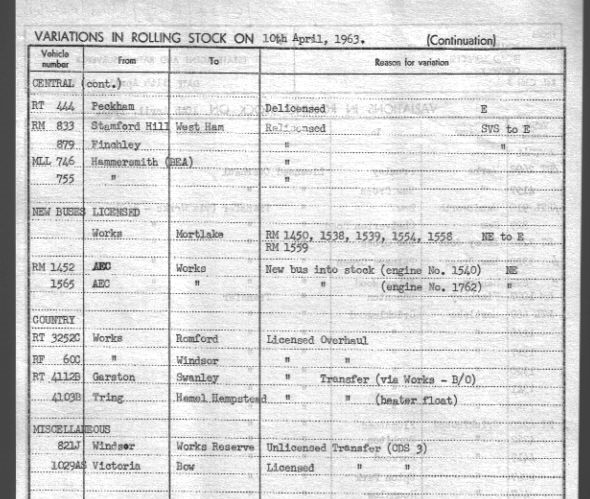 VARIATIONS IN ROLLING STOCK ON 10th April, 1963. (Continuation)
Vehicle number From To Reason for variation
CENTRAL (cont.)
RT 444 Peckham Delicensed E
RM 833 Stamford Hill West Ham Relicensed SVS to E
879 Finchley " "
MLL 746 Hammersmith (BEA) "
755 " "
NEW BUSES LICENSED
Works Mortlake RM 1450, 1538, 1539, 1554, 1558 NE to E
RM 1559
RM 1452 AEC Works New bus into stock (engine No. 1540) NE
1565 AEC " " (engine No. 1762) "
COUNTRY
RT 3252C Works Romford Licensed Overhaul
RF 60C " Windsor " "
RT 4112B Garston Swanley " Transfer (via Works - B/O)
4103B Tring Hemel Hempstead " " (heater float)
MISCELLANEOUS
821J Windsor Works Reserve Unlicensed Transfer (ODS 3)
1029AS Victoria Bow Licensed " "